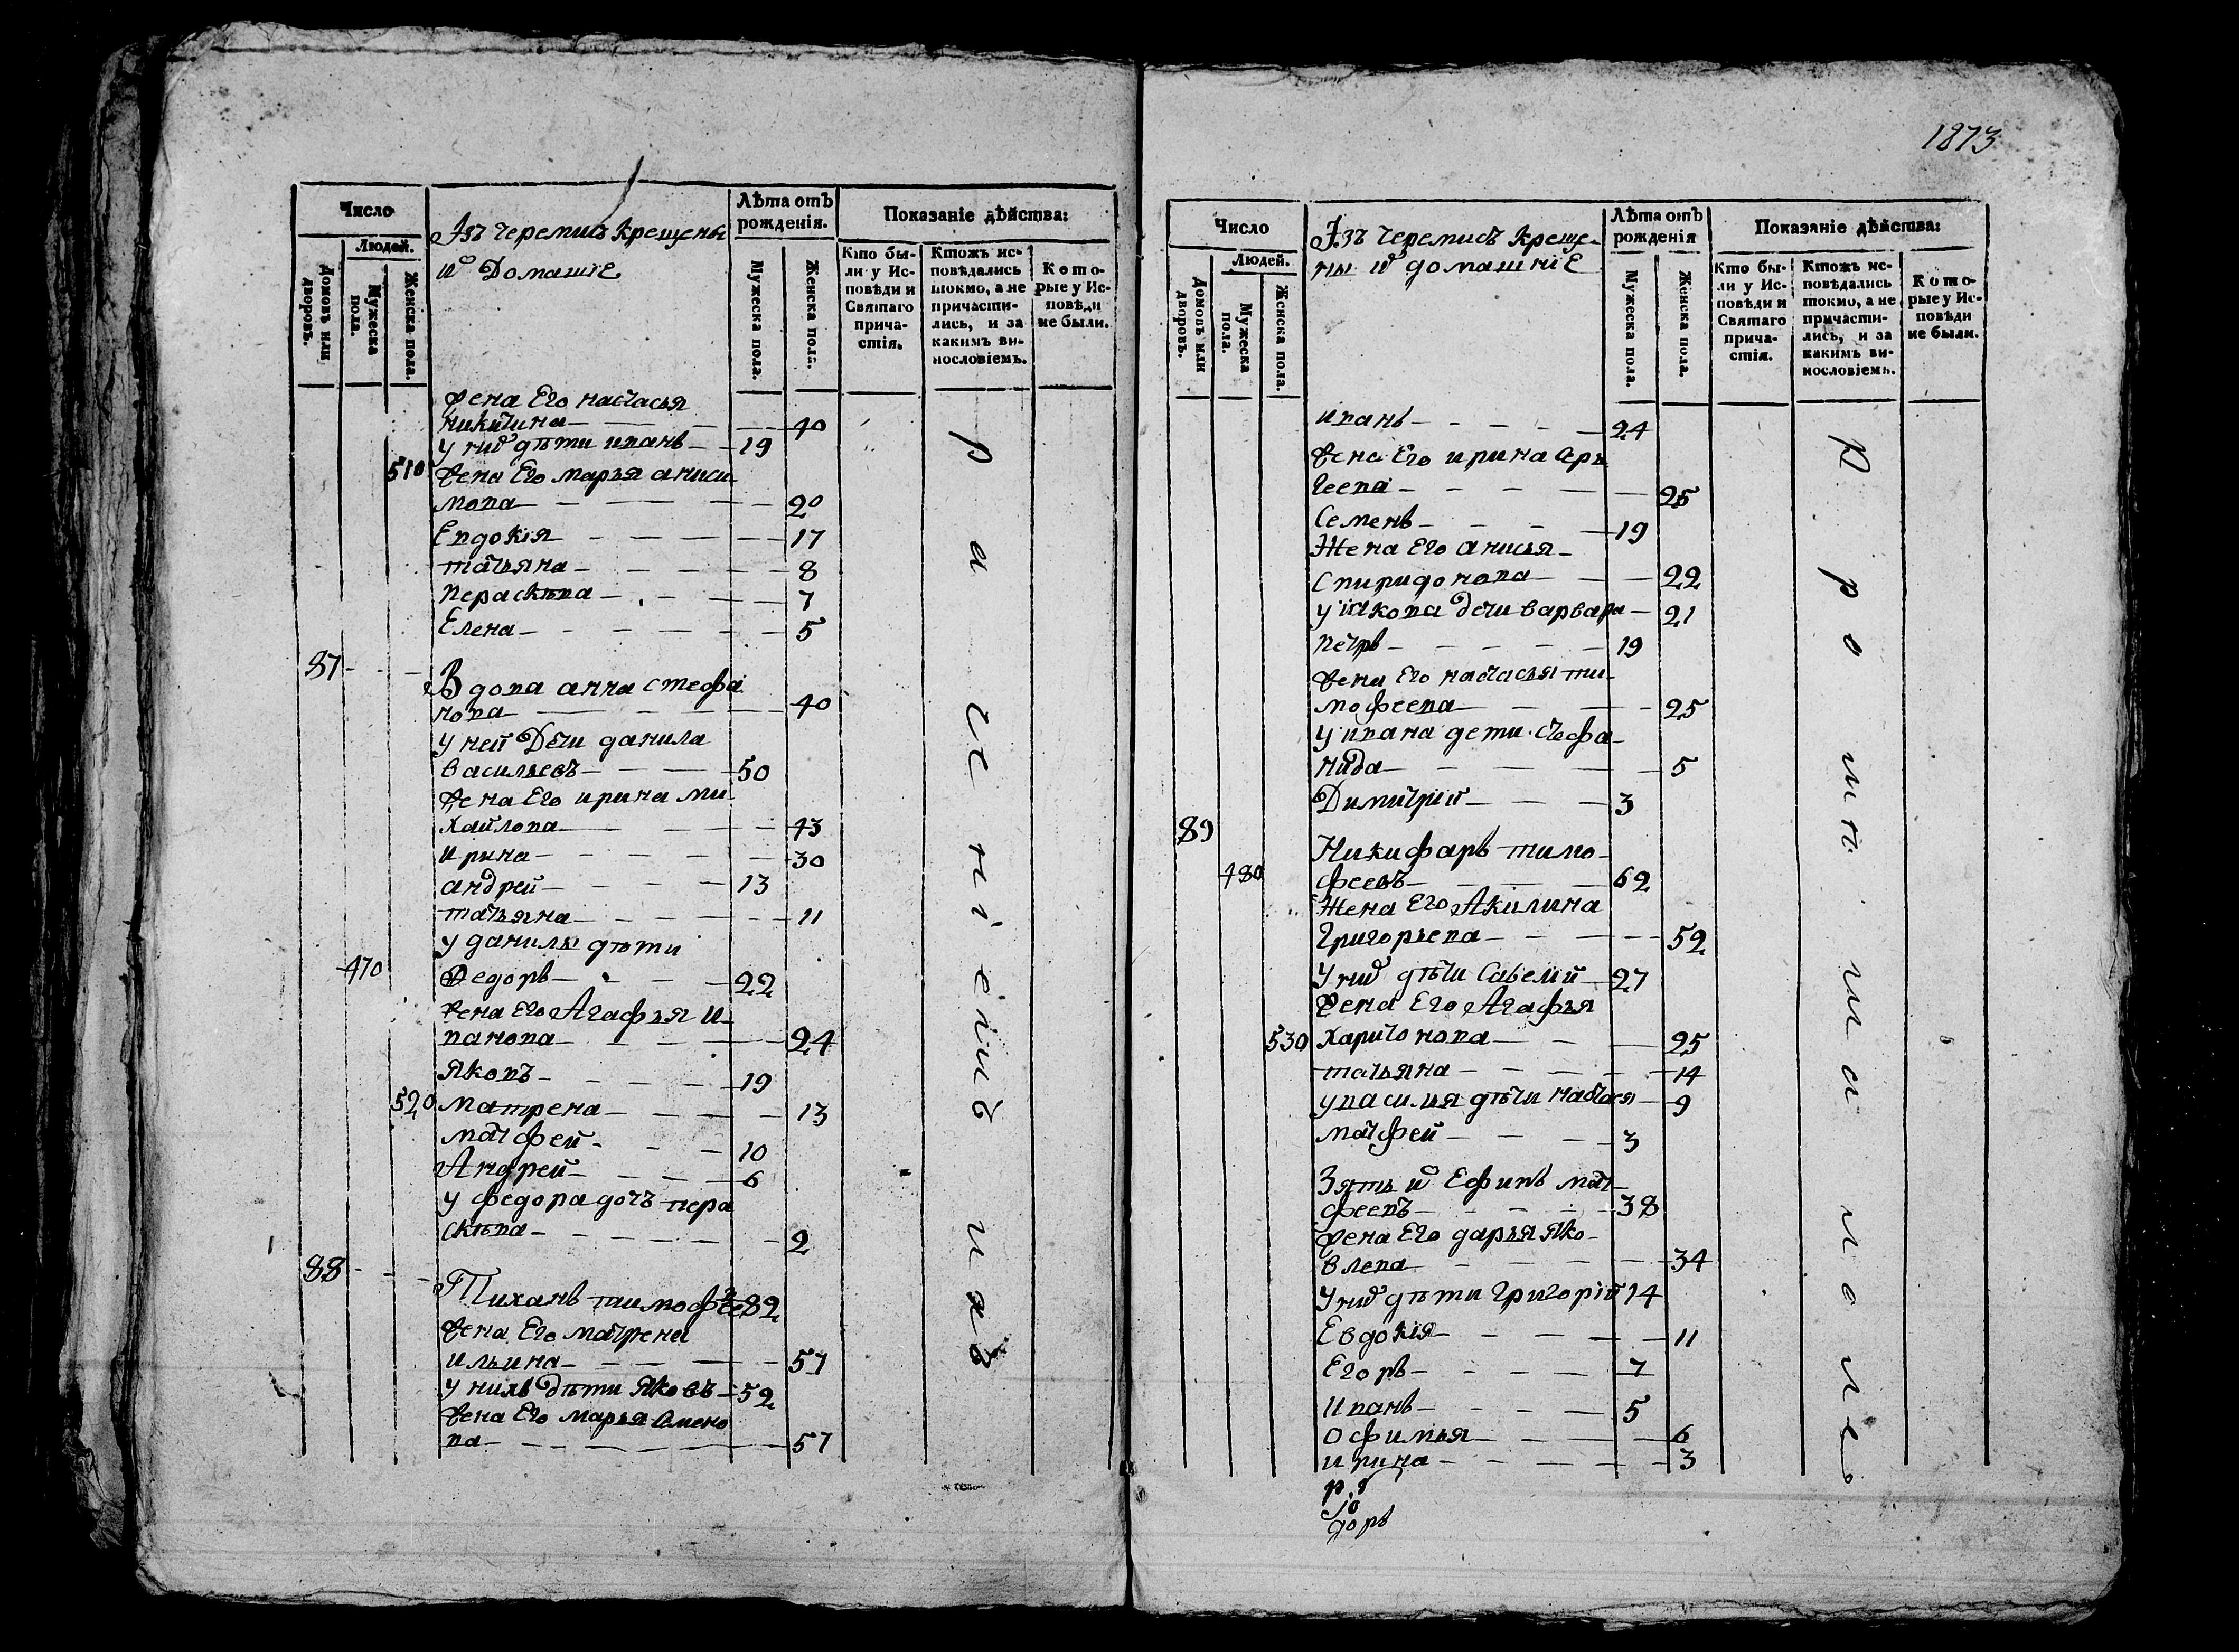 Число
Людей.
Домовъ или дворовъ.
Мужеска пола.
Женска пола.
Изъ черемисъ крещены
и҆хъ Домашніе
Лѣта отъ рожденія.
Мужеска пола.
Женска пола.
Показаніе дѣйства:
Кто бы-
ли у Ис-
повѣди и
Святаго
прича-
стія.
Ктожъ ис-
повѣдались
токмо, а не
причасти-
лись, и за
какимъ ви-
нословіемъ.
Кото-
рые у Ис-
повѣди
не были.
жена Его настасья
никитина 40
у нихъ дѣти иванъ 19
510 жена Его марья аниси
мова 20
Евдокія 17
татьяна 8
Пераскѣва 7
Елена 5
87 Вдова анна стефа
нова 40
у ней Дети данила
васильевъ 50
жена Его ирина ми
хайлова 43
ирина 30
андрей 13
татьяна 11
у данилы дѣти
470 Федоръ 22
жена Его Агафья и
ванова 24
Яковъ 19
520 матрена 13
матфей 10
Андрей 6
у федора дочъ пера
скѣва 2
88 Тиханъ тимофее 82
жена Его матрена
ильина 57
у нихъ дѣти Яковъ 52
жена Его марья семено
ва 57
1873
Число
Людей.
Домовъ или дворовъ.
Мужеска пола.
Женска пола.
Изъ черемисъ креще-
ны ихъ домашніе
Лѣта отъ рожденія
Мужеска пола.
Женска пола.
Показаніе дѣйства:
Кто бы-
ли у Ис-
повѣди и
Святаго
прича-
стія.
Ктожъ ис-
повѣдались
токмо, а не
причасти-
лись, и за
какимъ ви-
нословіемъ.
Кото-
рые у Ис-
повѣди
не были.
иванъ 24
жена Его ирина сер
геева 25
Семенъ 19
Жена Его анисья
спиридонова 22
у іакова дети варвара 21
петръ 19
жена Его настасья ти
мофеева 25
у ивана дети стефа
нида 5
Димитрій 3
89 Никифаръ тимо
480 феевъ 62
Жена Его Акилина
Григорьева 52
у нихъ дѣти Савелій 27
жена Его Агафья
530 Харитонова 25
татьяна 14
у василия дѣти настася 9
матфей 3
Зять ихъ Ефимъ мат
феевъ 38
жена Его дарья Яко
влева 34
у нихъ дѣти Григорій 14
Евдокія 11
Егоръ 7
Иванъ 5
Офимья 6
ирина 3